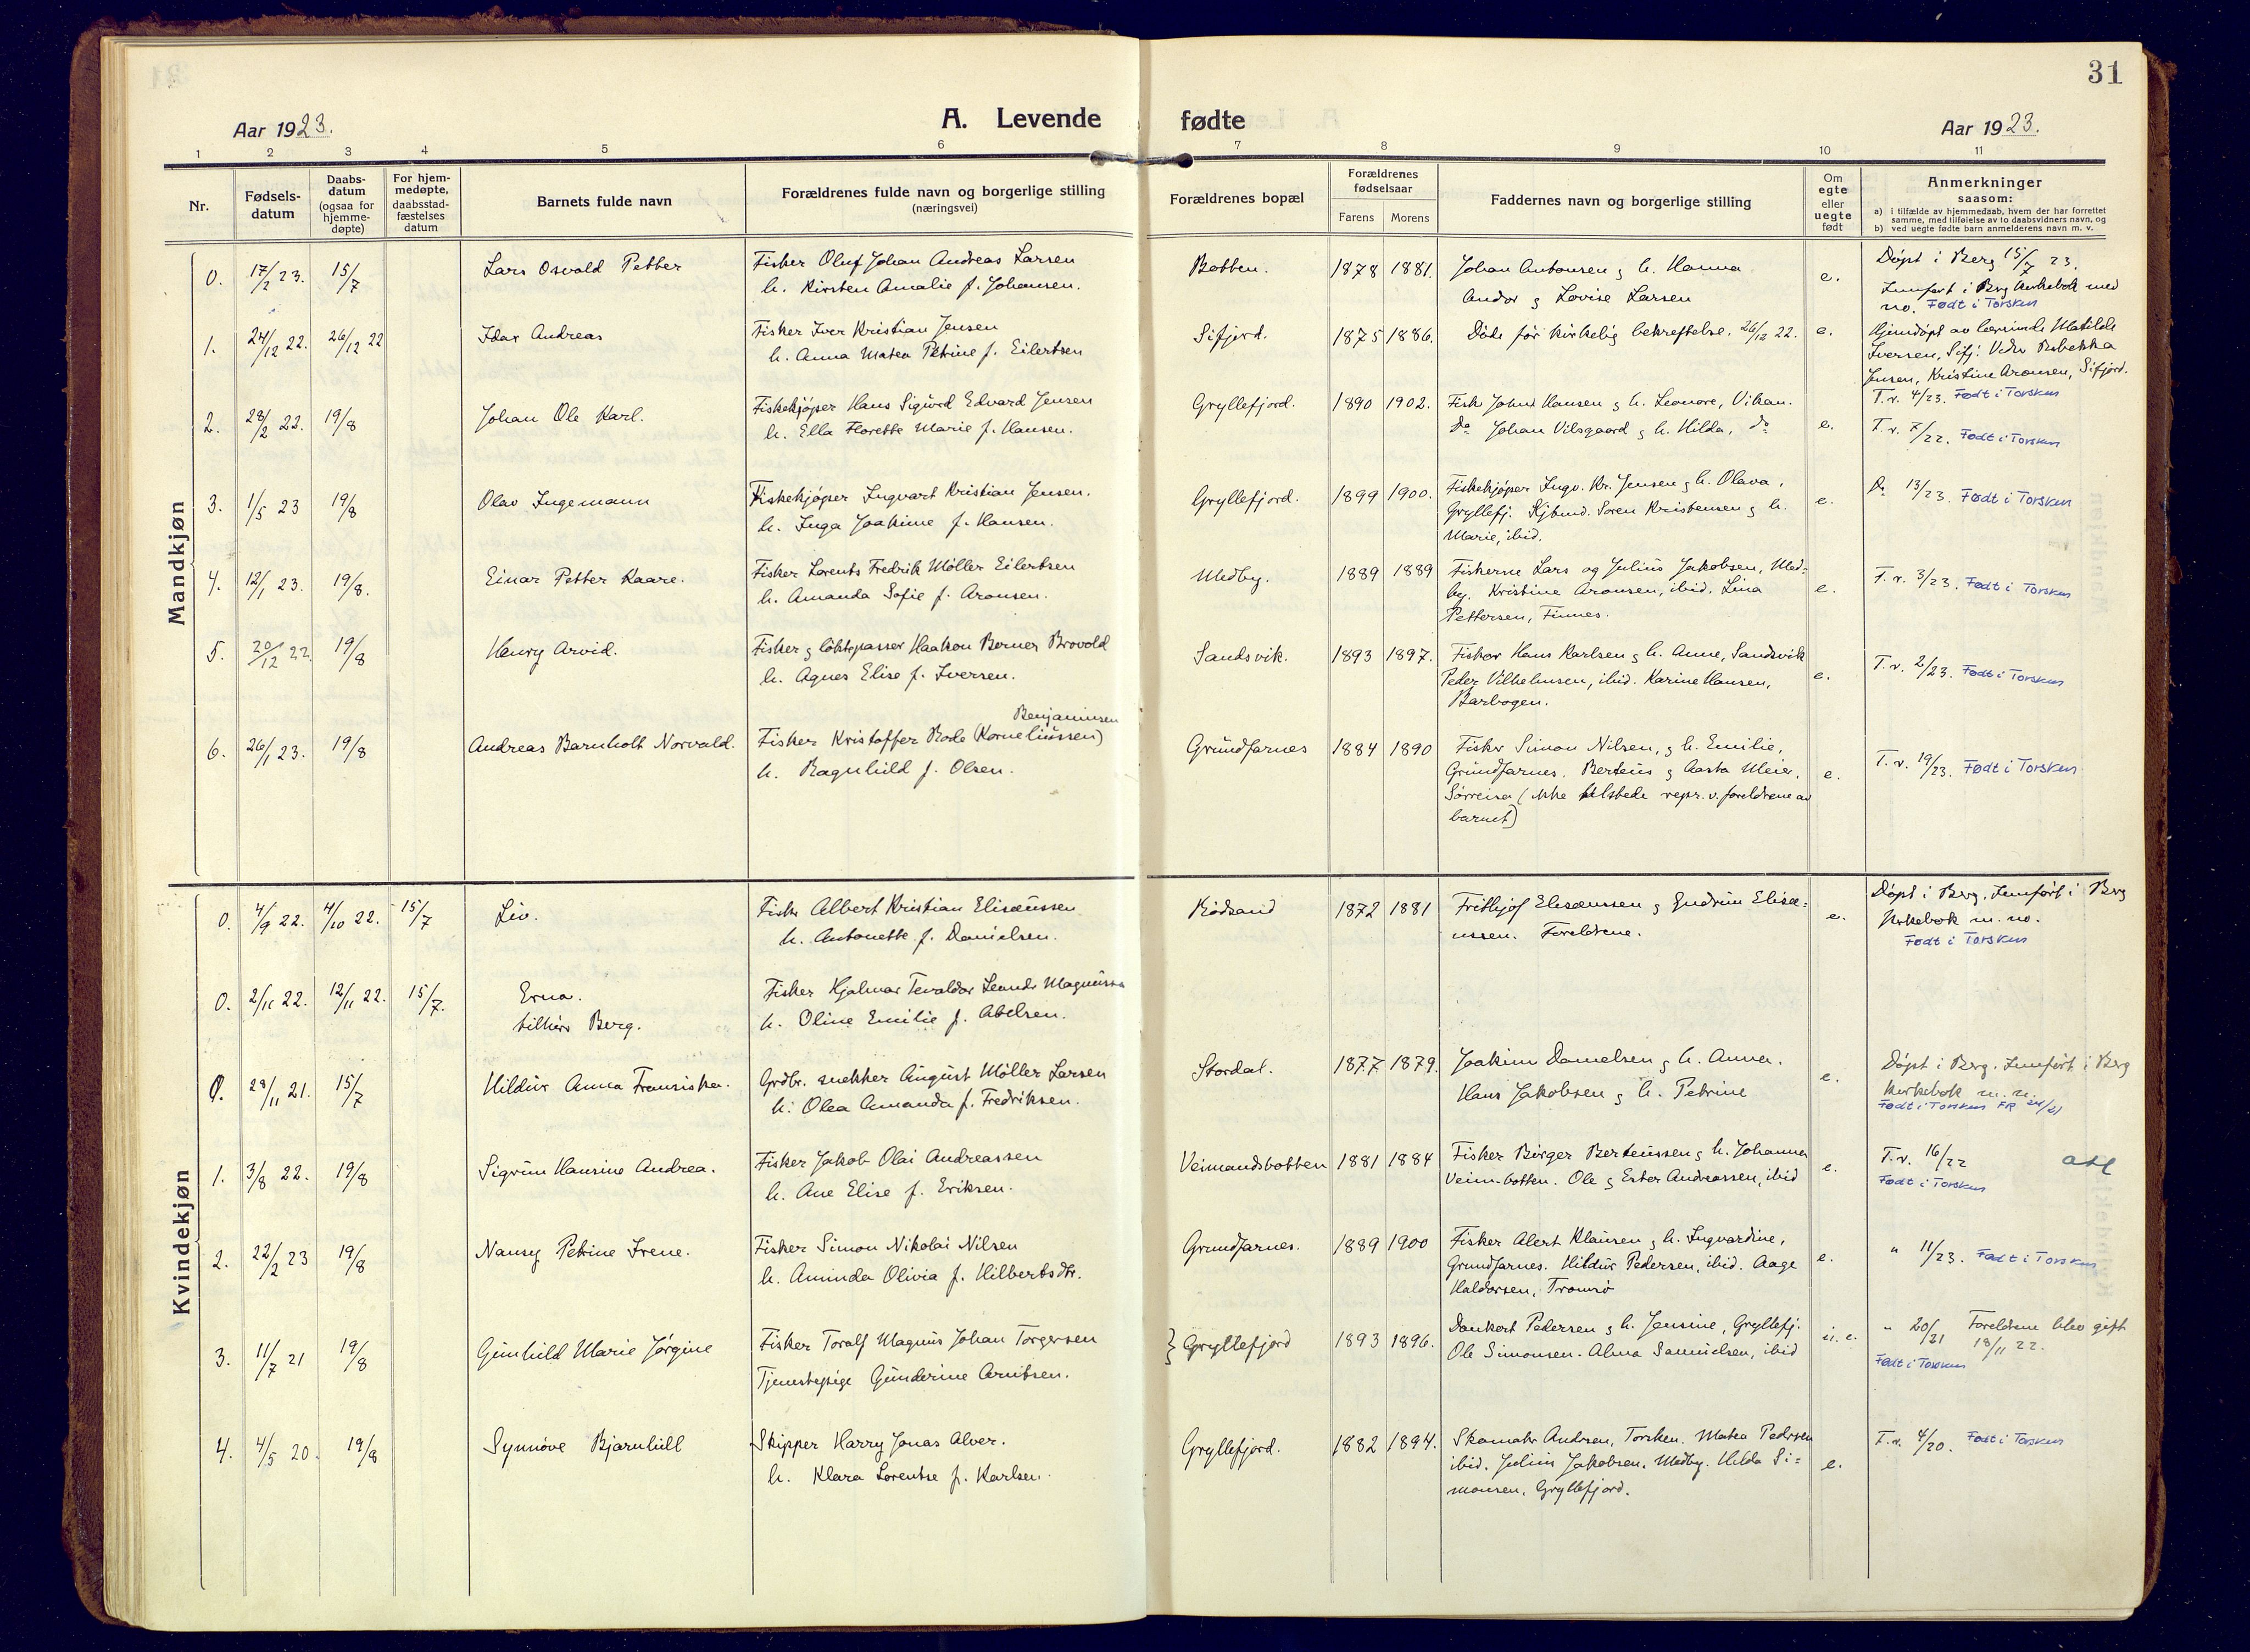 31
Aar 1923.
A. Levende fødte
Aar 1923.
1 2 3 4 5 6 7 8 9 10 11
Nr.
Fødsels-
datum
Daabs-
datum
(ogsaa for
hjemme-
døpte)
For hjem-
medøpte,
daabsstad-
fæstelses
datum
Barnets fulde navn
Forældrenes fulde navn og borgerlige stilling
(næringsvei)
Forældrenes bopæl
Forældrenes
fødselsaar
Farens Morens
Faddernes navn og borgerlige stilling
Om
egte
eller
uegte
født
Anmerkninger
saasom:
a) i tilfælde av hjemmedaab, hvem der har forrettet
samme, med tilføielse av to daabsvidners navn, og
b) ved uegte fødte barn anmelderens navn m. v.
Mandkjøn
0. 17/2 23. 15/7 Lars Osvald Petter
Fisker Oluf Johan Andreas Larsen
h. Kirsten Amalie f. Johansen.
Botten. 1878 1881.
Johan Antonsen & h. Hanna
Andor & Lovise Larsen
e.
Døpt i Berg 15/7 23.
Jemført i Berg kirkebok med
no. Født i Torsken
1. 24/12 22. 26/12 22 Idar Andreas
Fisker Iver Kristian Jensen
h. Anna Matea Petrine f. Eilertsen
Sifjord. 1875 1886.
Døde før kirkelig bekreftelse. 26/12 22.
e.
Hjemdøpt av lærerinde Matilde
Iversen, Sifj. Vidn Rebekka
Jensen, Kristine Aronsen, Sifjord.
T.r. 4/23. Født i Torsken
2. 28/2 22. 19/8 Johan Ole Karl.
Fiskekjøper Hans Sigurd Edvard Jensen
h. Ella Florette Marie f. Hansen.
Gryllefjord. 1890 1902.
Fisk John Hansen & h. Leonore, Vikan.
do Johan Vilsgaard & h. Hilda, do
e.
T.r. 7/22. Født i Torsken
3. 1/5 23 19/8 Olav Ingemann
Fiskekjøper Ingvart Kristian Jensen.
h. Inga Joakime f. Hansen.
Gryllefjord. 1899 1900.
Fiskekjøper Ingv. Kr. Jensen & h. Olava,
Gryllefj. Kjbmd. Søren Kristensen & h.
Marie, ibid.
e.
Do 13/23. Født i Torsken
4. 12/1 23. 19/8. Einar Petter Kaare.
Fisker Lorents Fredrik Möller Eilertsen
h. Amanda Sofie f. Aronsen.
Medby. 1889 1889
Fiskerne Lars og Julius Jakobsen, Med-
by. Kristine Aronsen, ibid. Lina
Pettersen, Finnes.
e.
T.r. 3/23. Født i Torsken
5. 20/12 22. 19/8 Henry Arvid.
Fisker & løktepasser Haakon Berner Brovold
h. Agnes Elise f. Iversen.
Sandsvik. 1893 1897.
Fisker Hans Karlsen & h. Anne, Sandsvik
Peder Vilhelmsen, ibid. Karine Hansen,
Barbogen.
e.
T.r. 2/23. Født i Torsken
6. 26/1 23. 19/8 Andreas Barnholt Norvald.
Benjaminsen
Fisker Kristoffer Bode (Korneliussen)
h. Ragnhild f. Olsen.
Grundfarnes 1884 1890
Fisker Simon Nilsen, & h. Emilie,
Grundfarnes. Berteus & Aasta Meier,
Sørreisa (ikke tilstede repr. v. foreldrene av
barnet)
e.
T.r. 19/23. Født i Torsken
Kvindekjøn
0. 4/9 22. 4/10 22. 15/7 Liv.
Fisker Albert Kristian Elisæussen
h. Antonette f. Danielsen.
Rødsand 1872 1881
Frithjof Elisæussen & Gudrun Elisæ-
ussen. Foreldrene.
e.
Døpt i Berg. Jemført i Berg
kirkebok m. no.
Født i Torsken
0. 2/11 22. 12/11 22. 15/7. Erna.
tilhører Berg.
Fisker Hjalmar Tevaldor Leander Magnussen
h. Oline Emilie f. Abelsen.
0. 28/11 21. 15/7 Hildur Anna Fransiska.
Grdbr. snekker August Möller Larsen
h. Olea Amanda f. Fredriksen.
Stordal. 1877 1879.
Joakim Danielsen & h. Anna.
Hans Jakobsen & h. Petrine
e.
Døpt i Berg. Jemført i Berg
kirkebok m. n.
Født i Torsken FR 24/21
1. 3/8 22. 19/8 Sigrun Hansine Andrea.
Fisker Jakob Olai Andreassen
h. Ane Elise f. Eriksen.
Veimandsbotten 1881 1884
Fisker Birger Berteussen & h. Johanna
Veim-botten. Ole & Ester Andreassen, ibid
e.
T.r. 16/22
Født i Torsken
2. 22/2 23 19/8 Nansy Petrine Irene.
Fisker Simon Nikolai Nilsen
h. Aminda Olivia f. Hilbertsdtr.
Grundfarnes. 1889 1900
Fisker Alert Klausen & h. Ingvardine,
Grundfarnes. Hildur Pedersen, ibid. Aage
Haldorsen, Tromsø
e.
" 11/23. Født i Torsken
3. 11/7 21 19/8 Gunhild Marie Jørgine
Fisker Toralf Magnus Johan Torgersen
Tjenestepige Gunderine Arntsen.
} Gryllefjord 1893 1896.
Dankert Pedersen & h. Jensine, Gryllefj.
Ole Simonsen. Alma Samuelsen, ibid
u. e.
" 20/21 Foreldrene blev gift
18/11 22.
Født i Torsken
4. 4/5 20. 19/8 Synnöve Bjarnhill
Skipper Harry Jonas Alver.
h. Klara Lorentse f. Karlsen.
Gryllefjord. 1882 1894.
Skomaker Andersen, Torsken. Matea Pedersen
ibid. Julius Jakobsen, Medby. Hilda Si-
monsen, Gryllefjord.
e.
T.r. 4/20. Født i Torsken